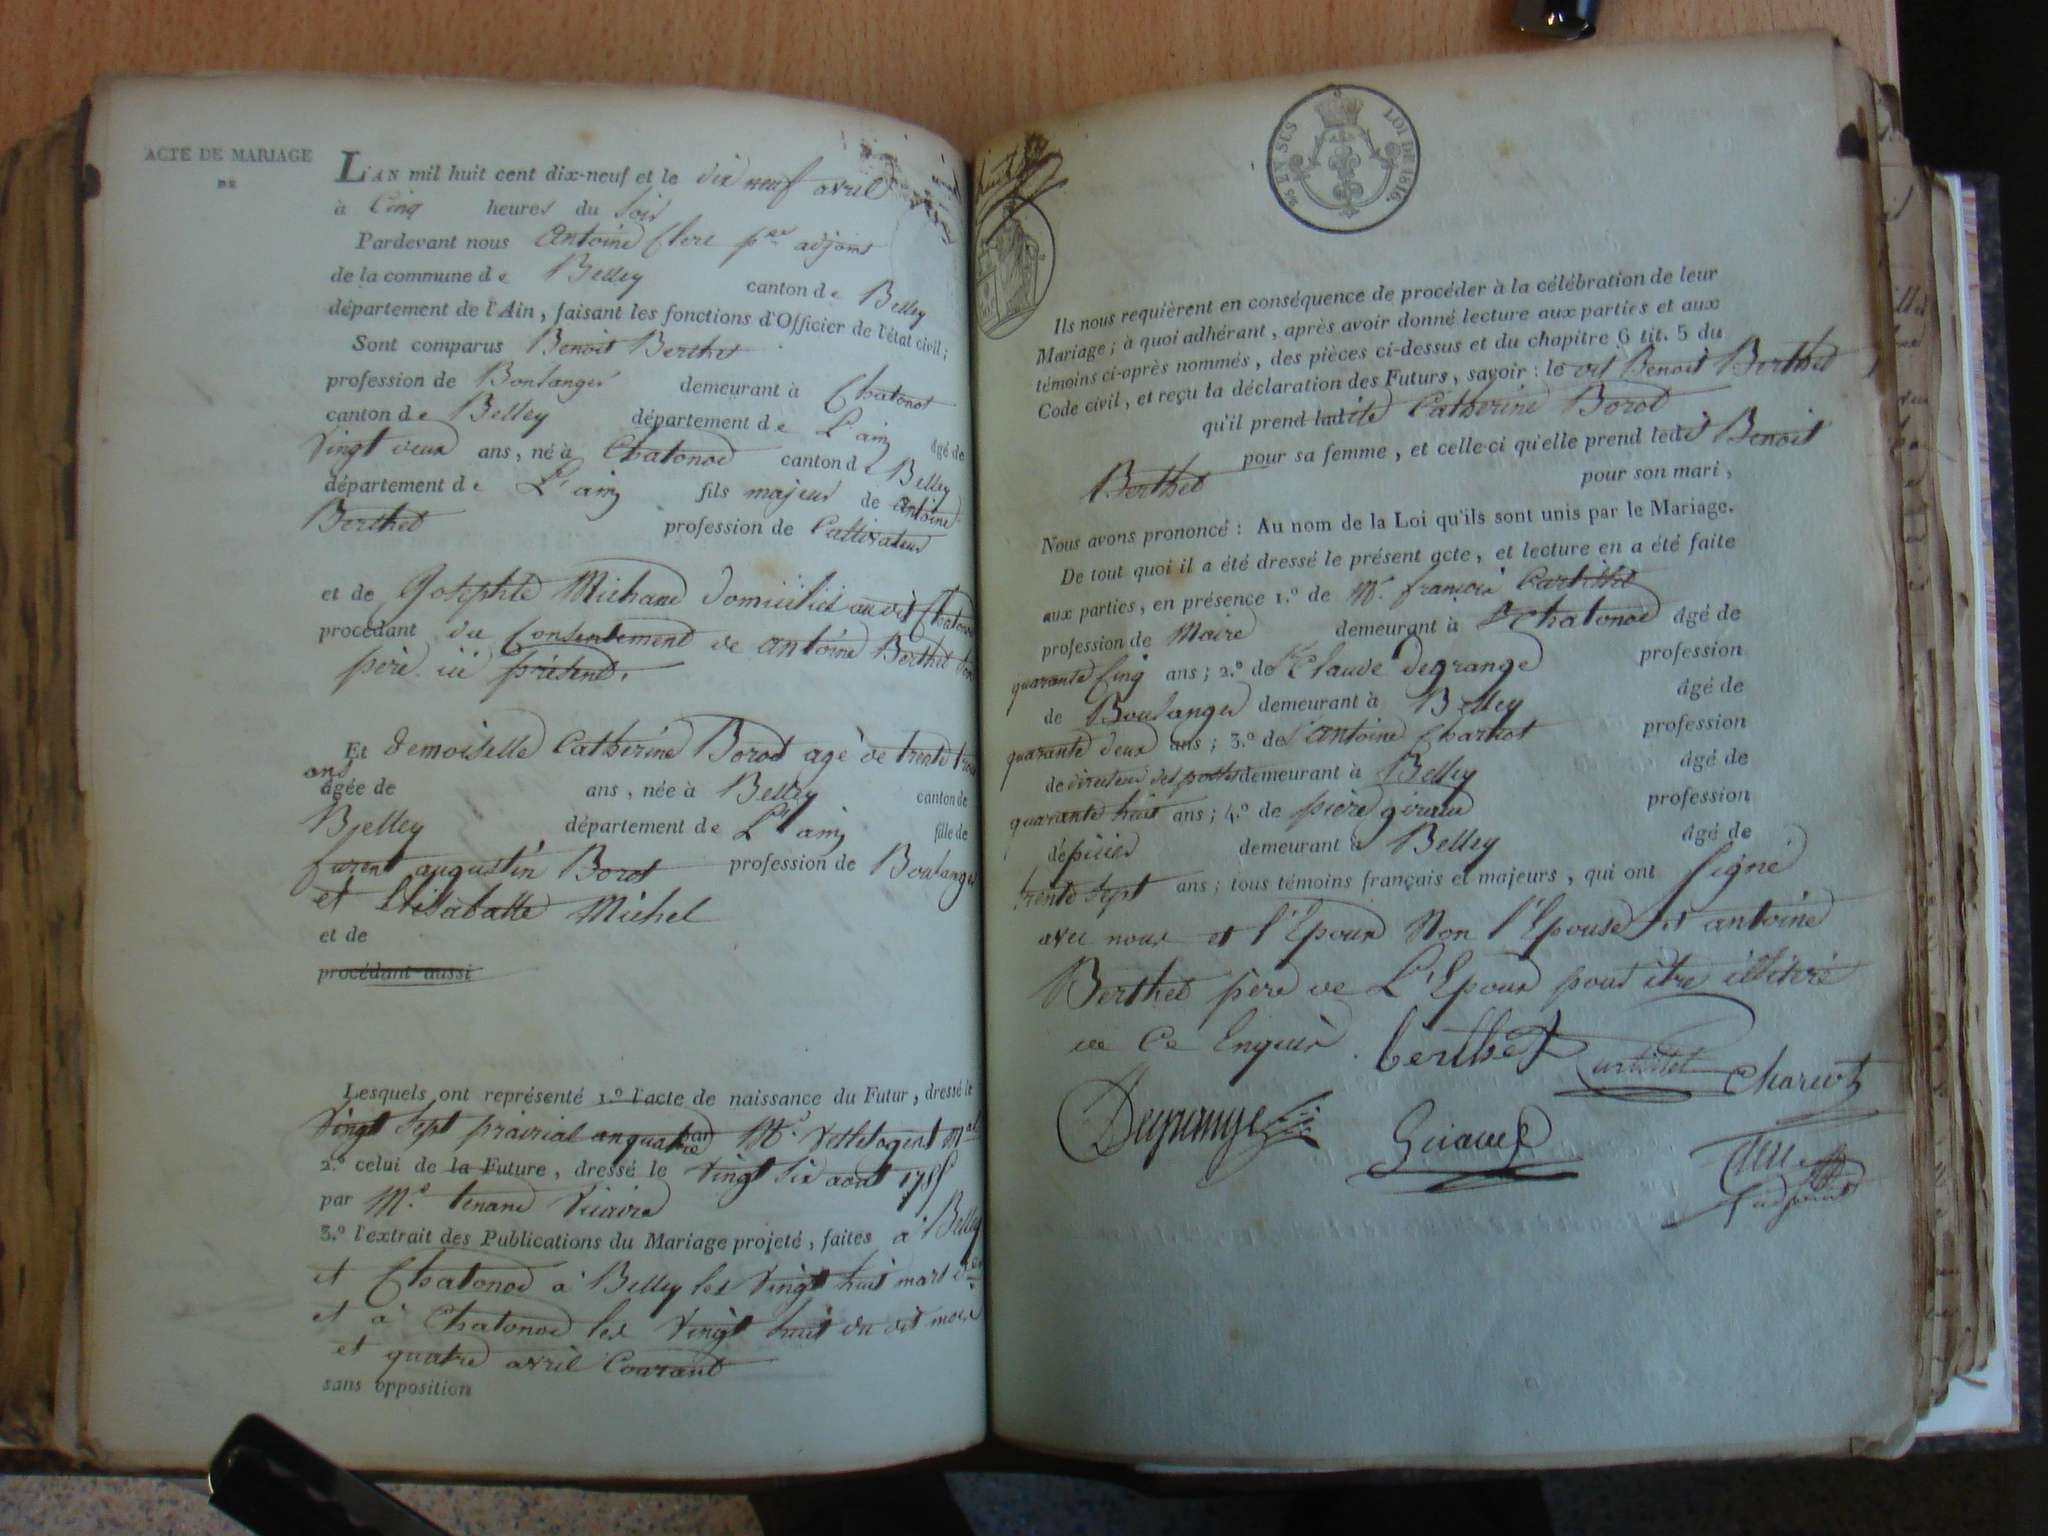 ACTE DE MARIAGE
DE
L'AN mil huit cent dix-neuf et le dix neuf avril
à Cinq heures du soir
Pardevant nous antoine Clerc p.er adjoint
de la commune de Belley canton de Belley
département de l'Ain, faisant les fonctions d'Officier de l'état civil;
Sont comparus Benoit Berthet
profession de Boulanger demeurant à Chatonod
canton de Belley département de L'ain âgé de
vingt deux ans, né à Chatonod canton de Belley
département de L'ain fils majeur de antoine
Berthet profession de Cultivateur
et de Josephte Michaud domiciliés au dit Chatonod
procédant du Consentement de antoine Berthet son
père ici présent.
Et demoiselle Catherine Borod agé de trente trois
ans
âgée de ans, née à Belley canton de
Belley département de L'ain fille de
furent augustin Borod profession de Boulanger
et Elisabatte Michel
et de
procédant aussi
Lesquels ont représenté 1.º l'acte de naissance du Futur, dressé le
vingt sept prairial an quatre par M.r agent M.al
2.º celui de la Future, dressé le vingt six aout 1785
par M.e tenand vicaire
3.º l'extrait des Publications du Mariage projeté, faites à Belley
et Chatonod à Belley les vingt huit mars
et à Chatonod les vingt huit du dit mois
et quatre avril Courant
sans opposition
LOI DE 1816.
Ils nous requièrent en conséquence de procéder à la célébration de leur
Mariage; à quoi adhérant, après avoir donné lecture aux parties et aux
témoins ci-après nommés, des pièces ci-dessus et du chapitre 6 tit. 5 du
Code civil, et reçu la déclaration des Futurs, savoir: le dit Benoit Berthet
qu'il prend ladite Catherine Borod
pour sa femme, et celle-ci qu'elle prend ledit Benoit
Berthet pour son mari,
Nous avons prononcé: Au nom de la Loi qu'ils sont unis par le Mariage.
De tout quoi il a été dressé le présent acte, et lecture en a été faite
aux parties, en présence 1.º de M.r françois Curtillet
profession de Maire demeurant à Chatonod âgé de
quarante Cinq ans; 2.º de S.r Claude degrange profession
de Boulanger demeurant à Belley âgé de
quarante deux ans; 3.º de S.r antoine Charcot profession
de directeur des postes demeurant à Belley âgé de
quarante huit ans; 4.º de pierre giraud profession
d'épicier demeurant à Belley âgé de
trente sept ans; tous témoins français et majeurs, qui ont signé
avec nous et l'Epoux Non l'Epouse et antoine
Berthet père de L'Epoux pour être illitéré
de Ce Enquis
berthet
Curtillet
Charcot
Degrange
Giraud
Clerc
adjoint